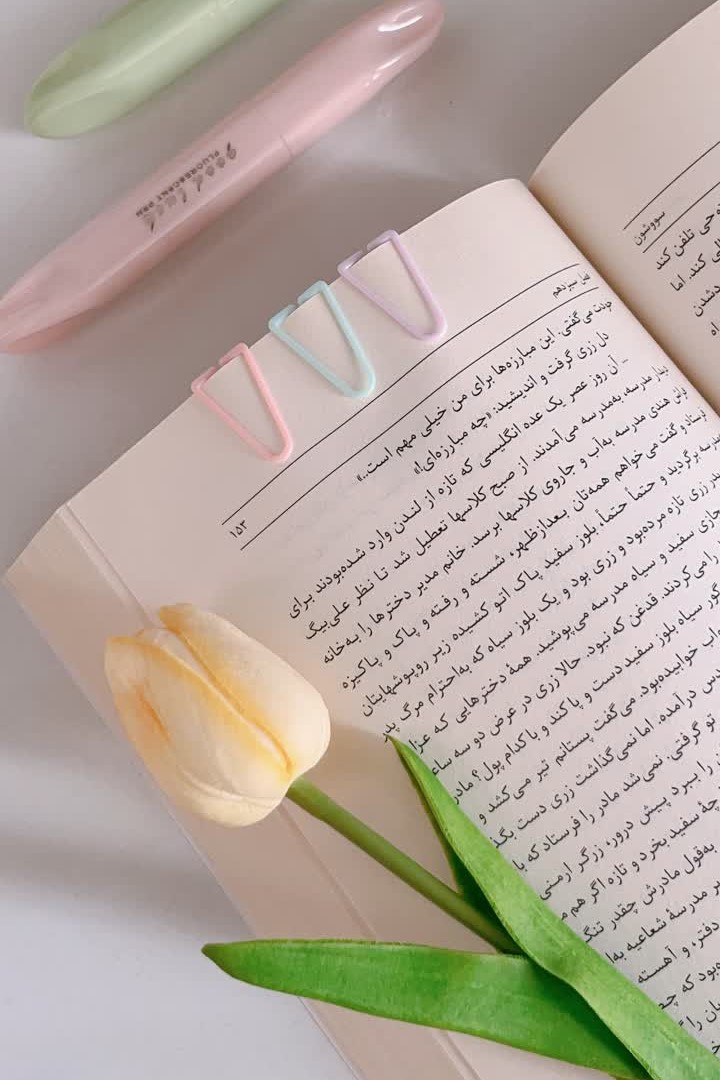 good luck
FLUORESCENT PEN
سووشون
حی تلفن کند
کند. اما
فصل سیزدهم
۱۵۳
می‌گفتی. این مبارزه‌ها برای من خیلی مهم است..»
دل زری گرفت و اندیشید: «چه مبارزه‌ای!»
آن روز عصر یک عده انگلیسی که تازه از لندن وارد شده‌بودند برای
دیدار مدرسه، به‌مدرسه می‌آمدند. از صبح کلاسها تعطیل شد تا نظر علی‌بیگ
هندی مدرسه به‌آب و جاروی کلاسها برسد. خانم مدیر دخترها را به‌خانه
و گفت می‌خواهم همه‌تان بعدازظهر، شسته و رفته و پاک و پاکیزه
برگردید و حتماً حتماً، بلوز سفید پاک اتو کشیده زیر روپوشهایتان
زری تازه مرده‌بود و زری بود و یک بلوز سیاه که به‌احترام مرگ پدر
سفید و سیاه مدرسه می‌پوشید. همهٔ دخترهایی که عزا
را می‌کردند. قدغن که نبود. حالا زری در عرض دو سه ساعت
سیاه بلوز سفید دست و پا کند و با کدام پول؟ مادر
خوابیده‌بود. می‌گفت پستانم تیر می‌کشد و
درآمده. اما نمی‌گذاشت زری دست بگذ
تو گرفتی. نمی‌شد مادر را فرستاد که با
را ببرد پیش درور، زرگر ارمنی
سفید بخرد و تازه اگر هم م
به‌قول مادرش چقدر تنگ
مدرسهٔ شعاعیه به‌ا
دفتر، و آهسته
بود که